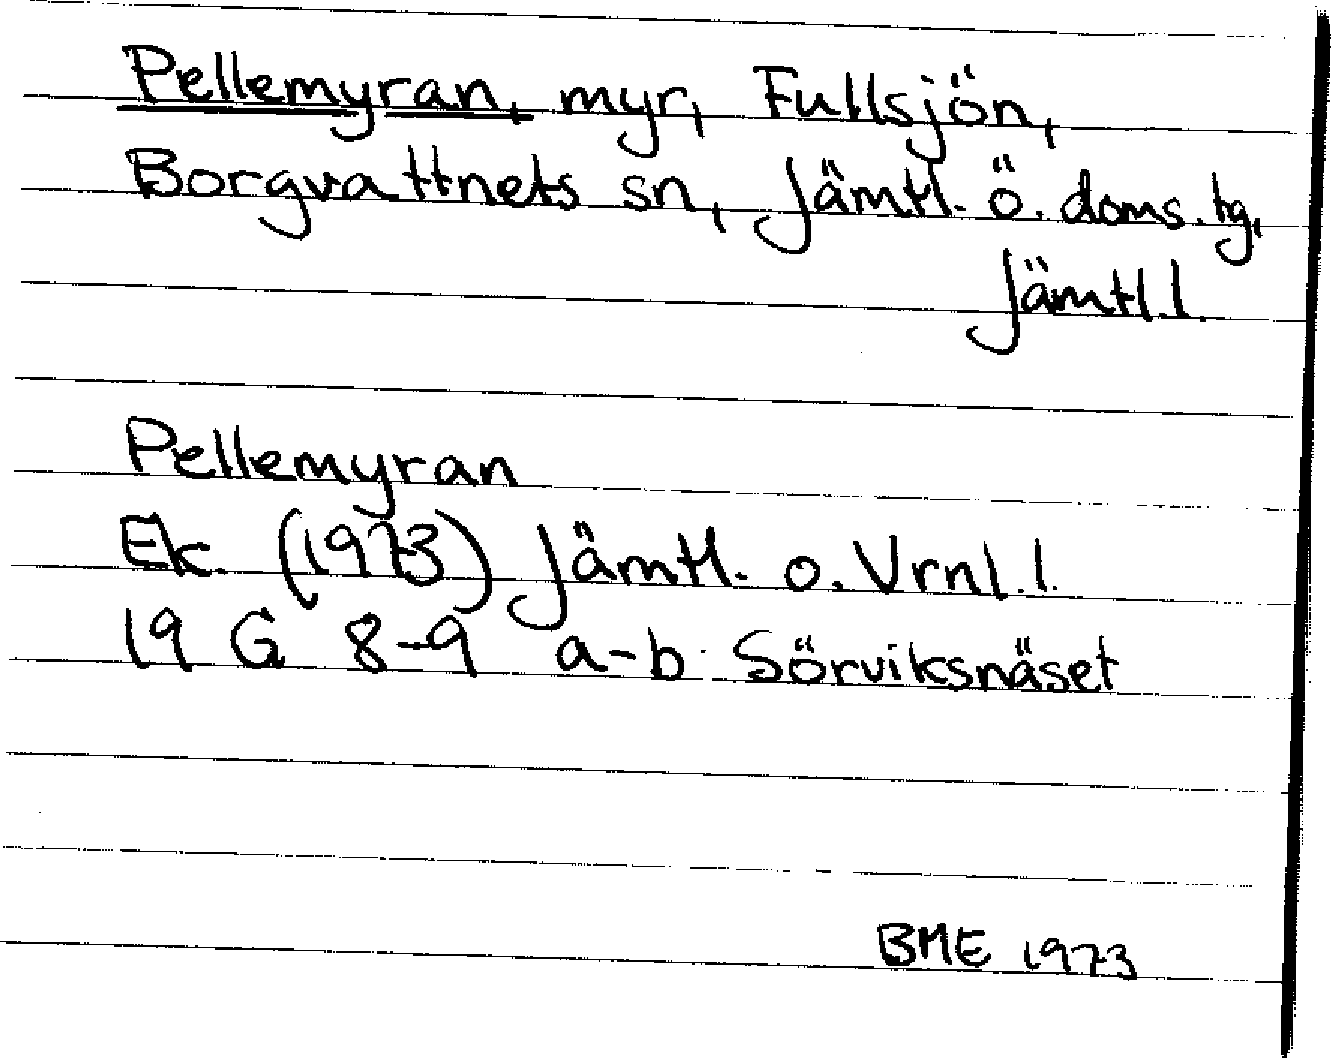 Pellemyran, myr, Fullsjön,
Borgvattnets sn, Jämtl. ö. doms. tg,
Jämtl. l.
Pellemyran
Ek. (1973) Jämtl. o. Vrnl. l.
19 G 8-9 a-b Sörviksnäset
BME 1973